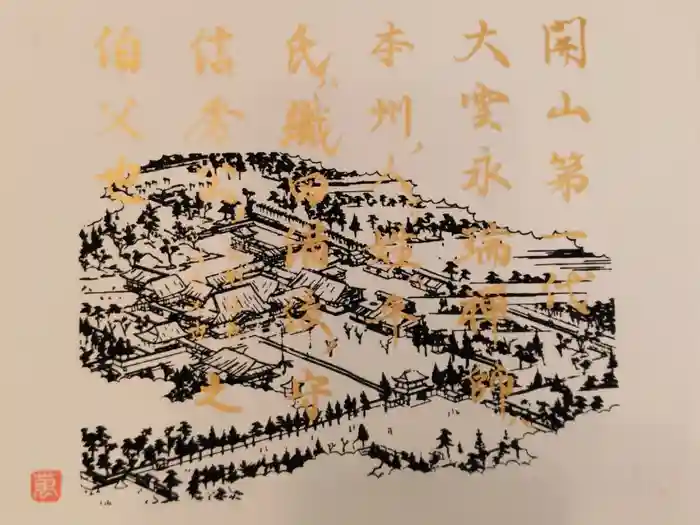 開山第一代
大雲永瑞禪師
本州人、姓平
氏、織田備後守
信秀公之
伯父也
萬